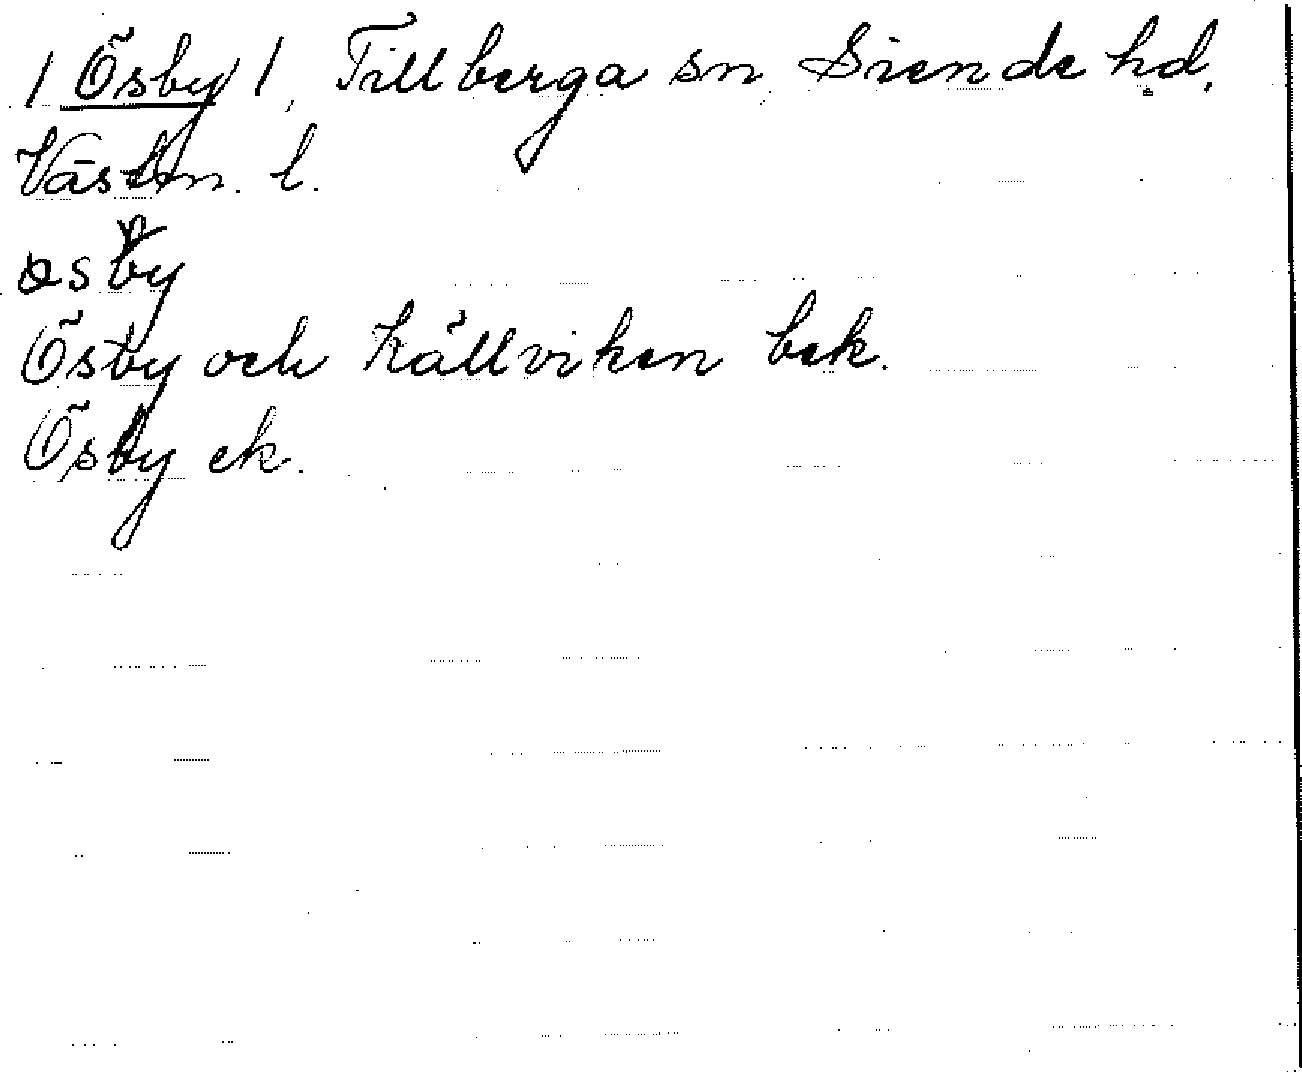 / Ösby /, Tillberga sn Siende hd.
Västm. l.
osby
Ösby och Källviken bek.
Ösby ek.